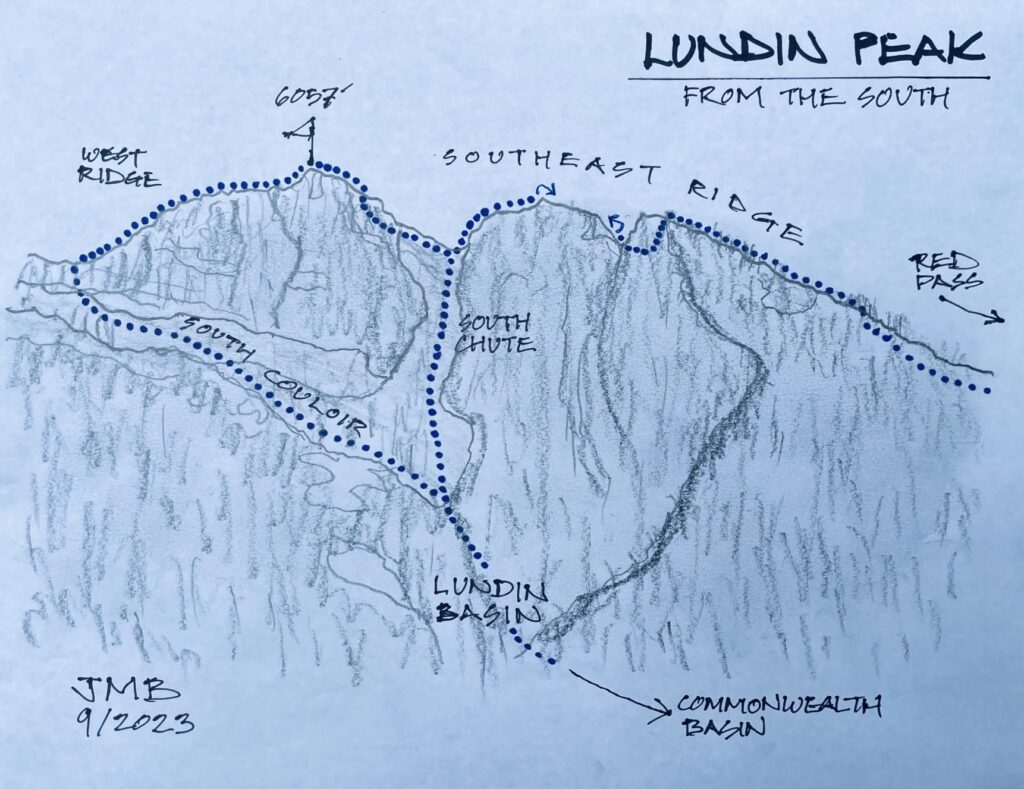 LUNDIN PEAK
FROM THE SOUTH
6057'
WEST
RIDGE
SOUTHEAST RIDGE
RED
PASS
SOUTH
CHUTE
SOUTH COULOIR
LUNDIN
BASIN
JMB
9/2023
COMMONWEALTH
BASIN